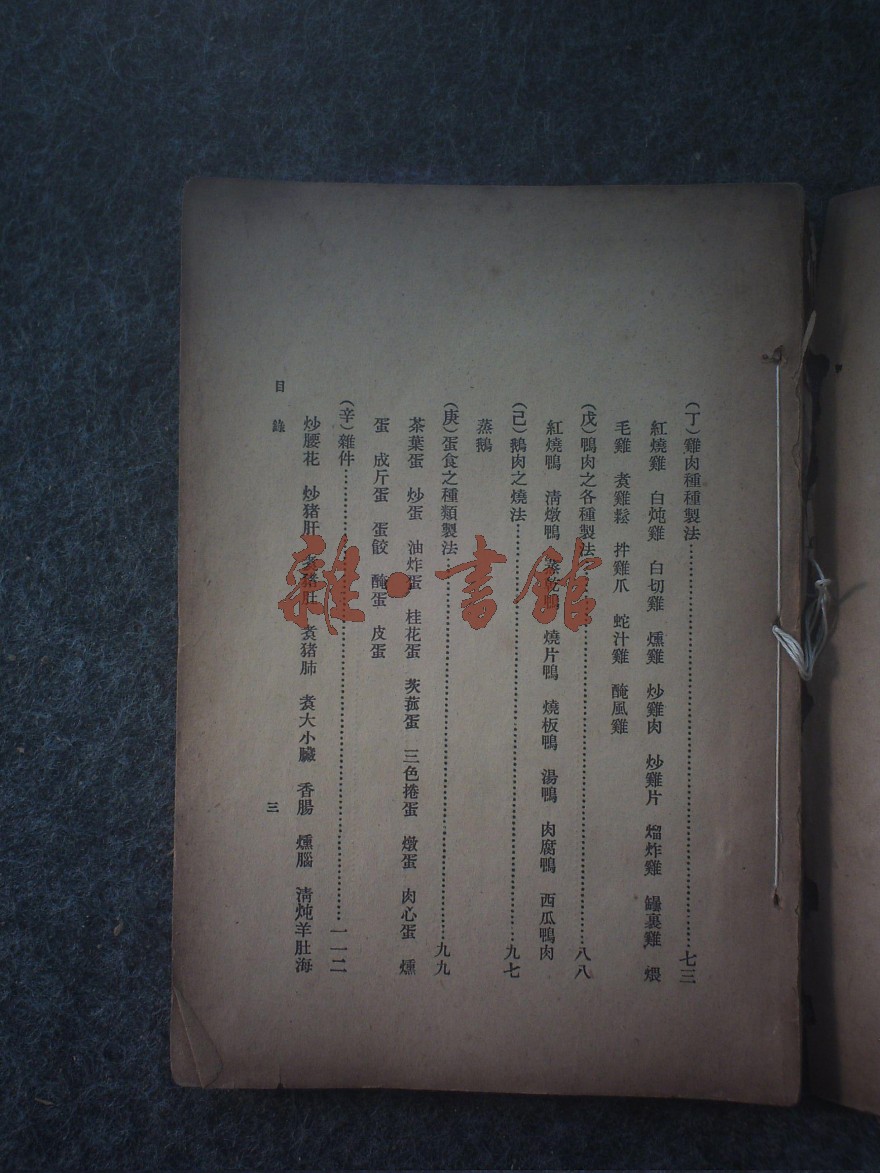 (丁)雞肉種種製法……七三
紅燒雞 白炖雞 白切雞 燻雞 炒雞肉 炒雞片 熘炸雞 罎裹雞 煨
毛雞 煑雞鬆 拌雞爪 蛇汁雞 醃風雞
(戊)鴨肉之各種製法……八八
紅燒鴨 清燉鴨 鴨 燒片鴨 燒板鴨 湯鴨 肉腐鴨 西瓜鴨肉
(己)鵝肉之燒法……九七
蒸鵝
(庚)蛋食之種類製法……九九
茶葉蛋 炒蛋 油炸蛋 桂花蛋 茨菰蛋 三色捲蛋 燉蛋 肉心蛋 燻
蛋 成斤蛋 蛋餃 醃蛋 皮蛋
(辛)雜件……一一二
炒腰花 炒猪肝 煑猪肚 煑猪肺 煑大小臟 香腸 燻腦 清炖羊肚海
目錄
三
雜·書館